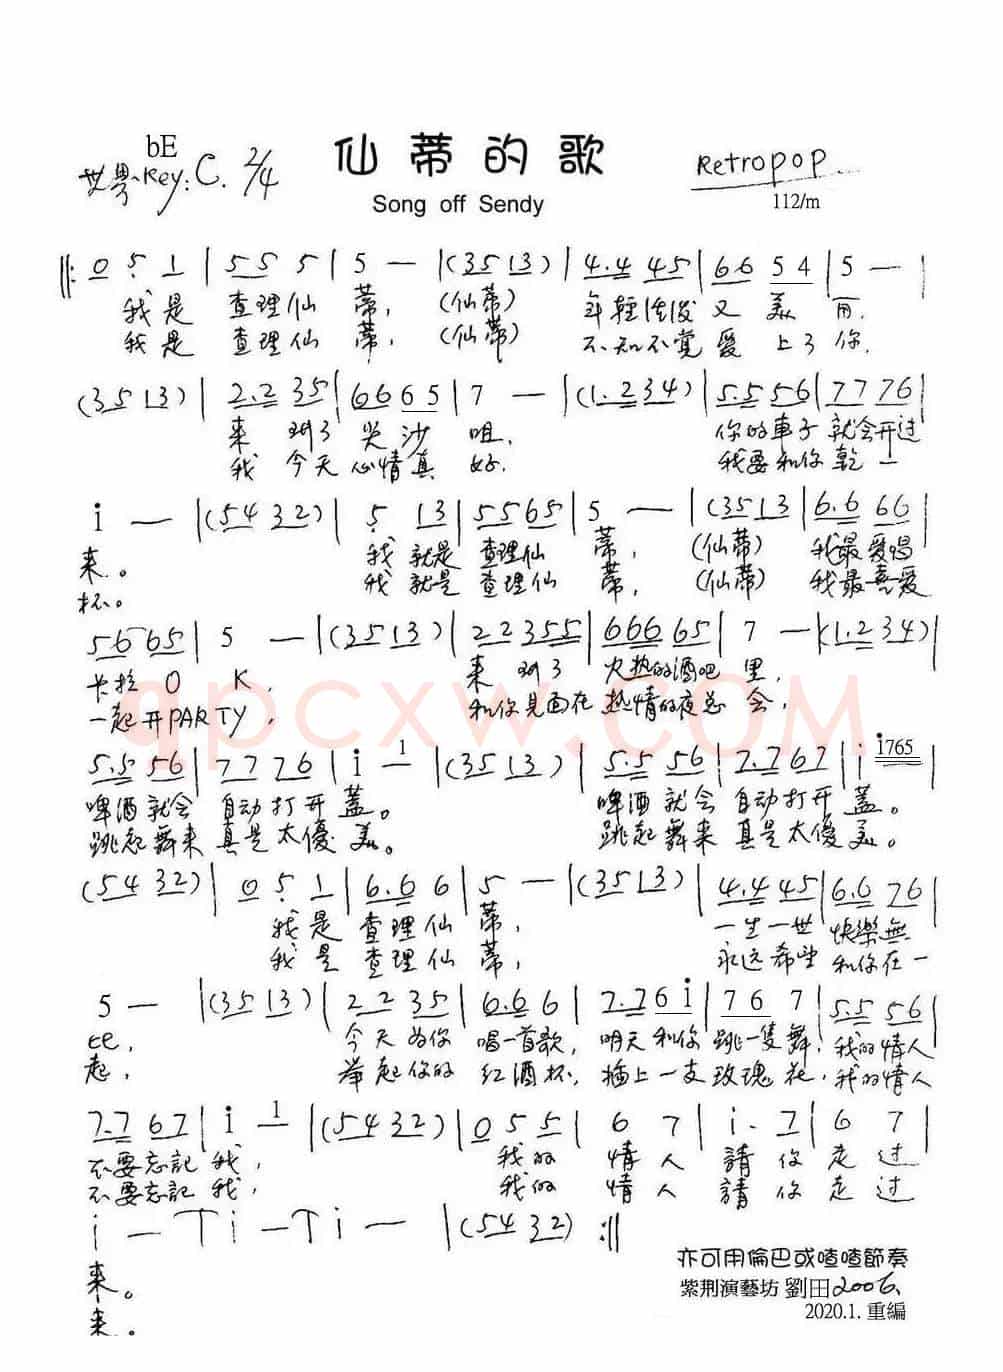 bE
仙蒂的歌
世界~Key: C. 2/4
Retropop
Song off Sendy
112/m
‖: 0 5̣ 1 | 5 5 5 | 5 — | (35 13) | 4.4 45 | 66 54 | 5 — |
我是 查理仙 蒂, (仙蒂) 年輕活泼又美丽.
我是 查理仙 蒂, (仙蒂) 不知不觉爱上了你.
(35 13) | 2.2 35 | 66 65 | 7 — | (1.2 34) | 5.5 56 | 77 76 |
来到了尖沙咀, 你的車子就会开过
我今天心情真好. 我要和你乾一
i — | (54 32) | 5̣ 13 | 55 65 | 5 — | (35 13) | 6.6 66 |
来。 我就是查理仙 蒂, (仙蒂) 我最爱唱
杯。 我就是查理仙 蒂, (仙蒂) 我最喜爱
56 65 | 5 — | (35 13) | 22 355 | 666 65 | 7 — | (1.2 34) |
卡拉OK, 来到了火热的酒吧里,
一起开PARTY, 和你見面在热情的夜总会,
qpcxw.com
5.5 56 | 77 76 | i 1 — | (35 13) | 5.5 56 | 7.7 67 | i i765 |
啤酒就会自动打开蓋。 啤酒就会自动打开蓋。
跳起舞来真是太優美。 跳起舞来真是太優美。
(54 32) | 0 5̣ 1 | 6.6 6 | 5 — | (35 13) | 4.4 45 | 6.6 76 |
我是 查理仙 蒂, 一生一世快樂無
我是 查理仙 蒂, 永远希望和你在一
5 — | (35 13) | 22 35 | 6.6 6 | 7.7 6 i | 76 7 | 5.5 56 |
比, 今天为你唱一首歌, 明天和你跳一隻舞, 我的情人
起, 举起你的红酒杯, 插上一支玫瑰花, 我的情人
7.7 67 | i 1 — | (54 32) | 0 5 5 | 6 7 | i. 7 | 6 7 |
不要忘記我, 我的情人請你走过
不要忘記我, 我的情人請你走过
i — | i — | i — | (54 32) :‖
来。
来.
亦可用倫巴或喳喳節奏
紫荆演藝坊 劉田2006.
2020.1. 重編